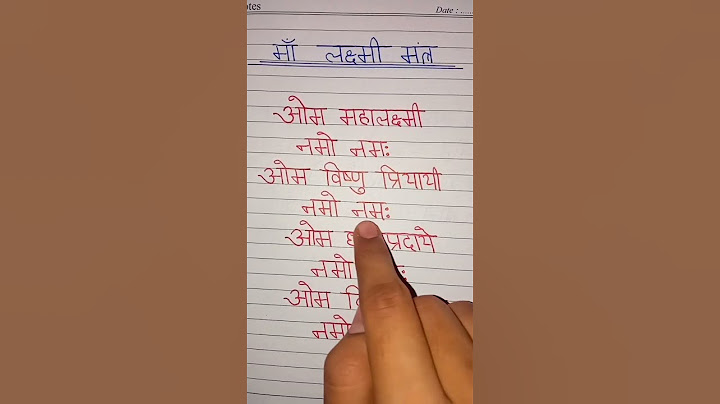 otes
Date : ......
माँ लक्ष्मी मंत्र
ओम महालक्ष्मी
नमो नमः
ओम विष्णु प्रियायी
नमो नमः
ओम प्रदाये
नमो
ओम
नमो